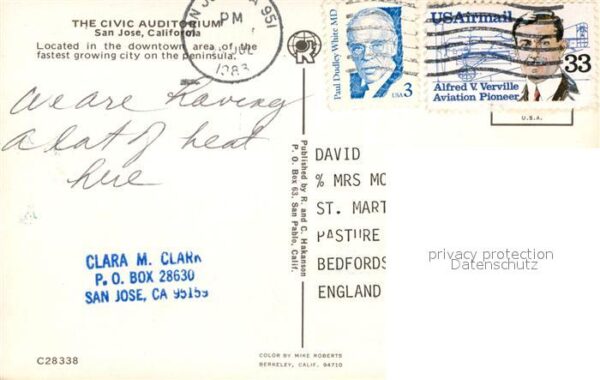 THE CIVIC AUDITORIUM
San Jose, California
Located in the downtown area of the
fastest growing city on the peninsula.
PM
JUL
We are having
a lot of heat
here
CLARA M. CLARK
P. O. BOX 28630
SAN JOSE, CA 95159
C28338
Published by R. and C. Hakanson
P. O. Box 63, San Pablo, Calif.
COLOR BY MIKE ROBERTS
BERKELEY, CALIF. 94710
Paul Dudley White MD
USA 3
USAirmail
33
Alfred V. Verville
Aviation Pioneer
U.S.A.
DAVID
% MRS MC
ST. MART
PASTURE
BEDFORDS
ENGLAND
privacy protection
Datenschutz